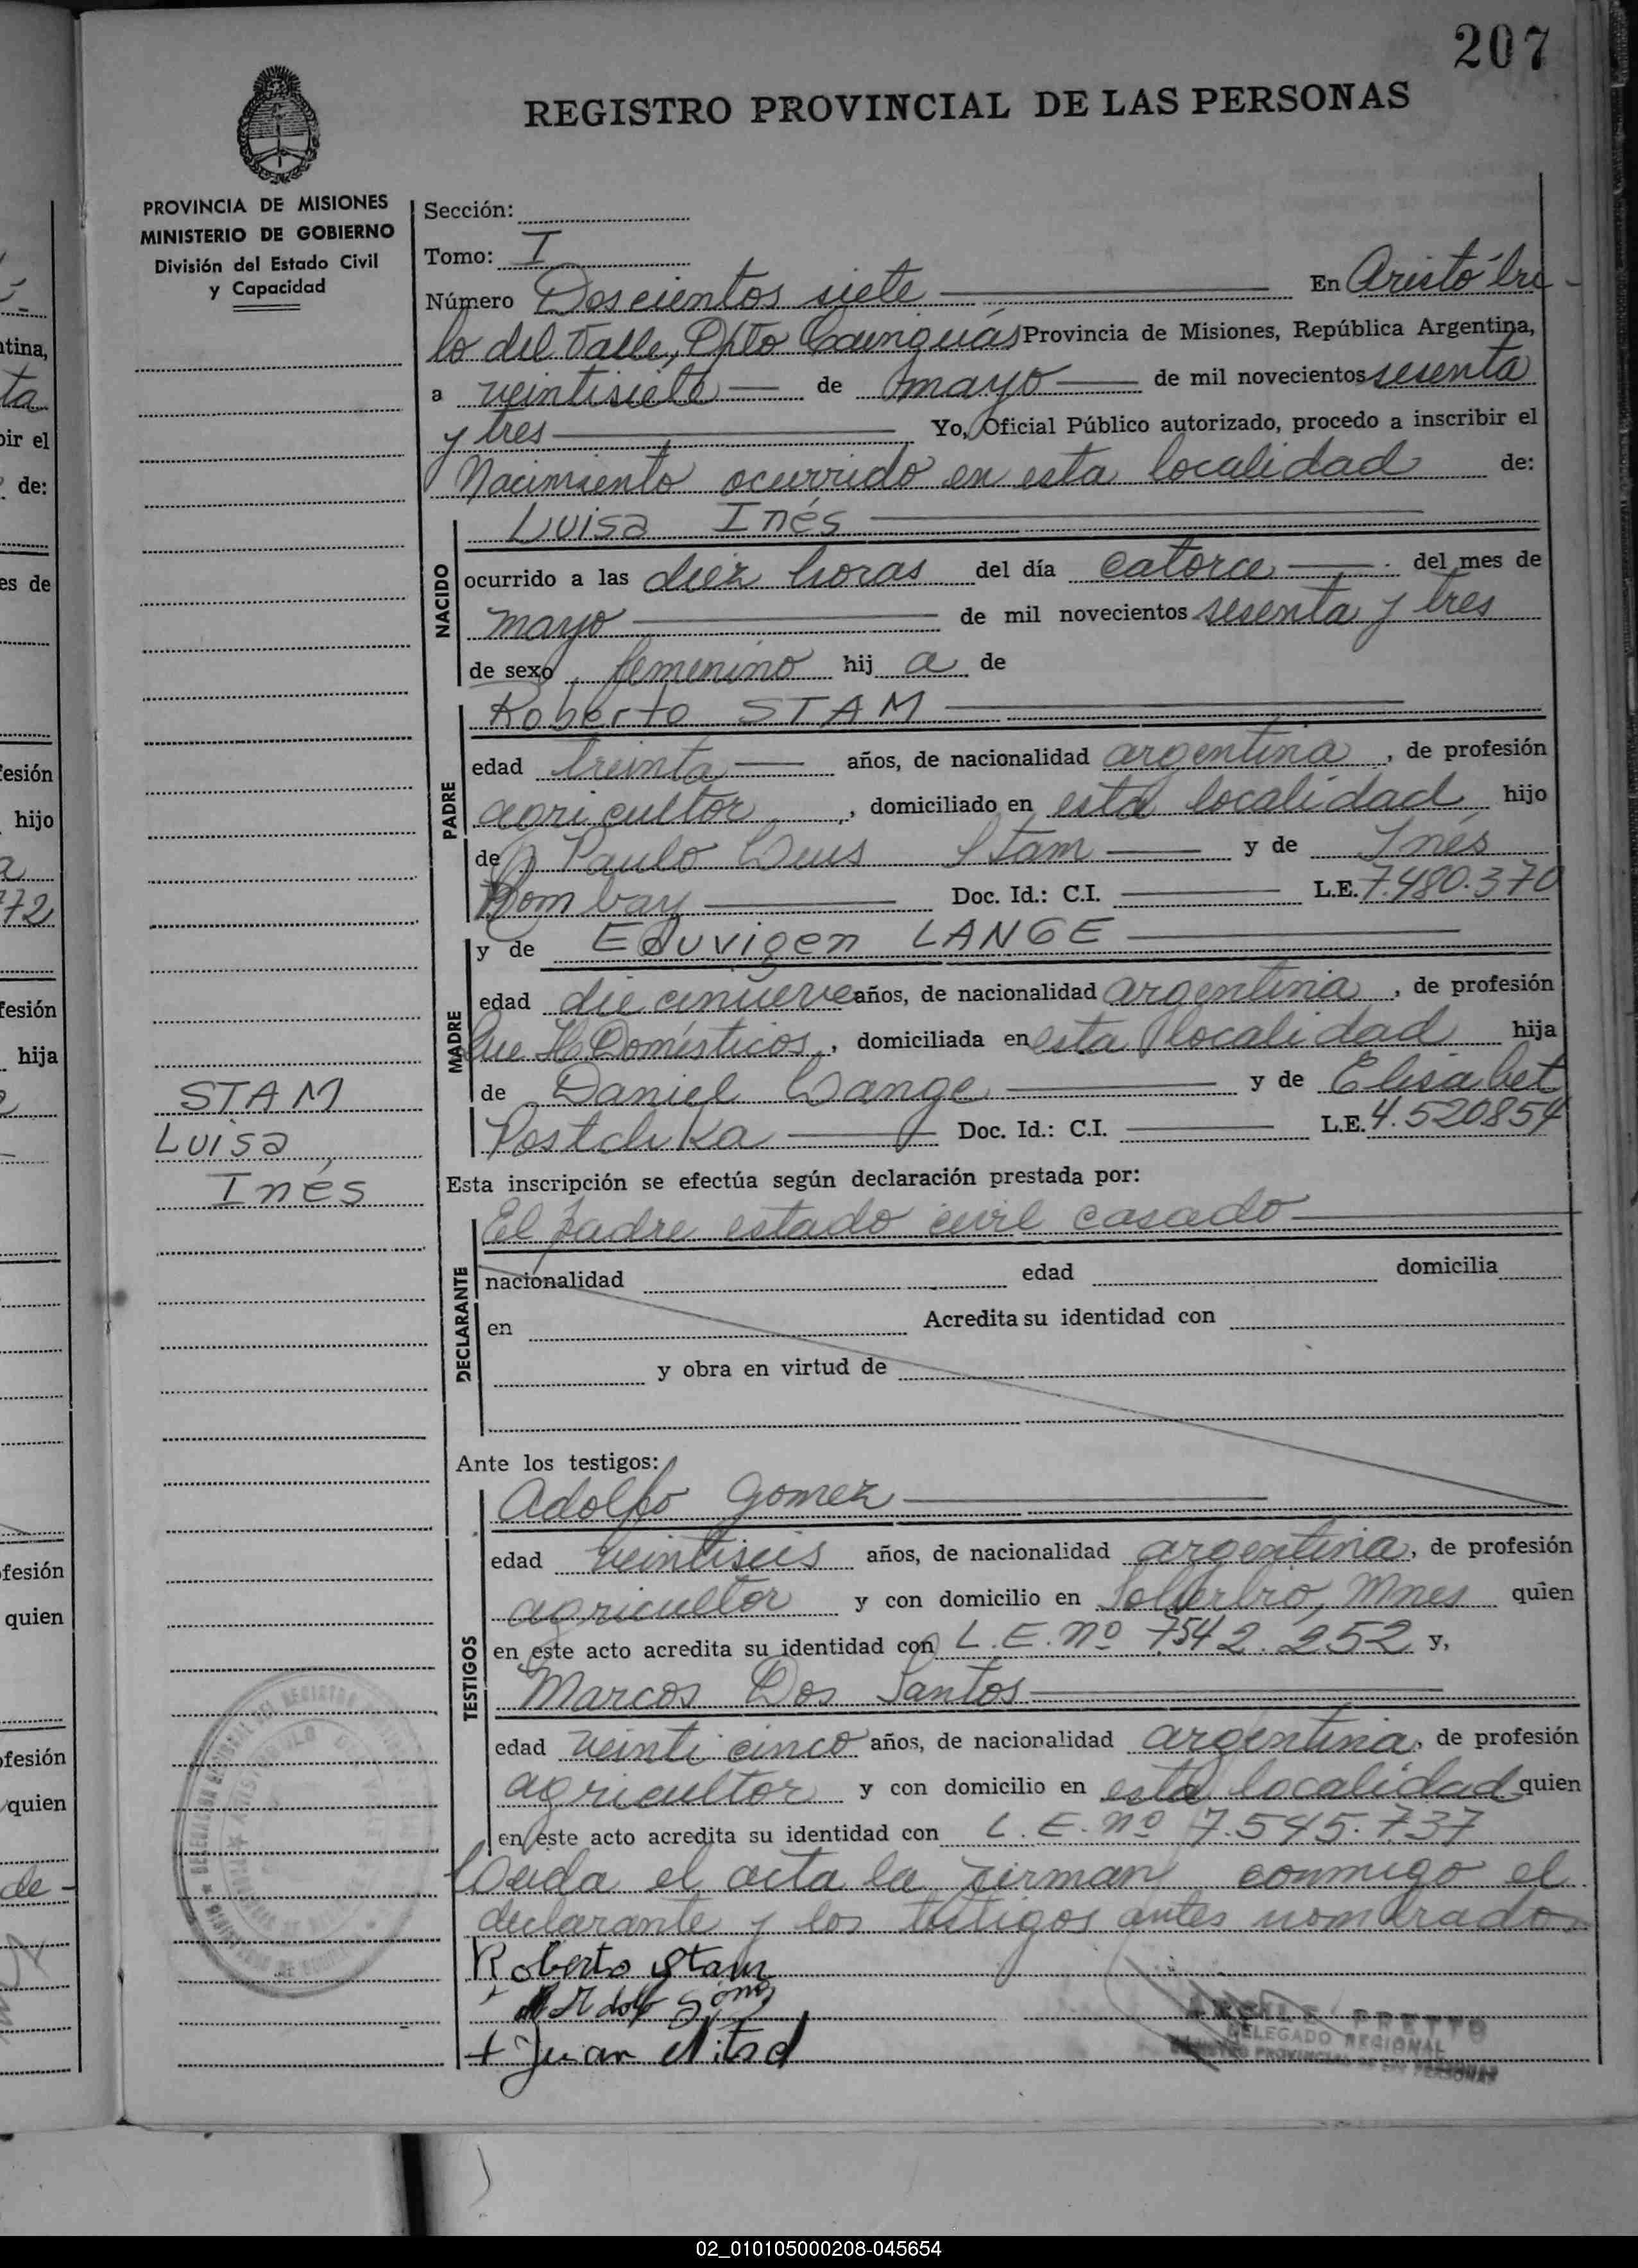 207
REGISTRO PROVINCIAL DE LAS PERSONAS
PROVINCIA DE MISIONES
MINISTERIO DE GOBIERNO
División del Estado Civil
y Capacidad
Sección:
Tomo: I
Número Doscientos siete En Aristóbu-
lo del Valle, Dpto Cainguás Provincia de Misiones, República Argentina,
a veintisiete de mayo de mil novecientos sesenta
y tres Yo, Oficial Público autorizado, procedo a inscribir el
Nacimiento ocurrido en esta localidad de:
Luisa Inés
NACIDO
ocurrido a las diez horas del día catorce del mes de
mayo de mil novecientos sesenta y tres
de sexo femenino hij a de
Roberto STAM
PADRE
edad treinta años, de nacionalidad argentina, de profesión
agricultor, domiciliado en esta localidad hijo
de Paulo Luis Stam y de Inés
Bombay Doc. Id.: C.I. L.E. 7.480.370
y de Eduvigen LANGE
MADRE
edad diecinueve años, de nacionalidad argentina, de profesión
Que H. Domésticos, domiciliada en esta localidad hija
de Daniel Lange y de Elisabet
Postchka Doc. Id.: C.I. L.E. 4.520854
STAM
Luisa
Inés
Esta inscripción se efectúa según declaración prestada por:
El padre estado civil casado
DECLARANTE
nacionalidad edad domicilia
en Acredita su identidad con
y obra en virtud de
Ante los testigos:
Adolfo Gomez
TESTIGOS
edad veintiseis años, de nacionalidad argentina, de profesión
agricultor y con domicilio en Mnes quien
en este acto acredita su identidad con L.E. Nº 7542.252 y,
Marcos Dos Santos
edad veinticinco años, de nacionalidad argentina, de profesión
agricultor y con domicilio en esta localidad quien
en este acto acredita su identidad con L.E. Nº 7.545.737
Leida el acta la firman conmigo el
declarante y los testigos antes nombrados
Roberto Stam
+ Juan
PRETTO
DELEGADO REGIONAL
REGISTRO PROVINCIAL DE LAS PERSONAS
02_010105000208-045654